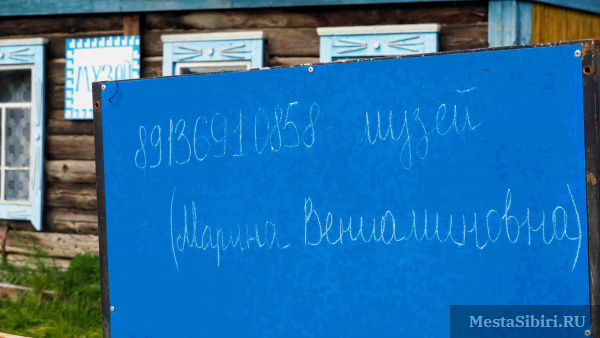 МУЗЕЙ
89136910858 - музей
(Марина Вениаминовна)
MestaSibiri.RU